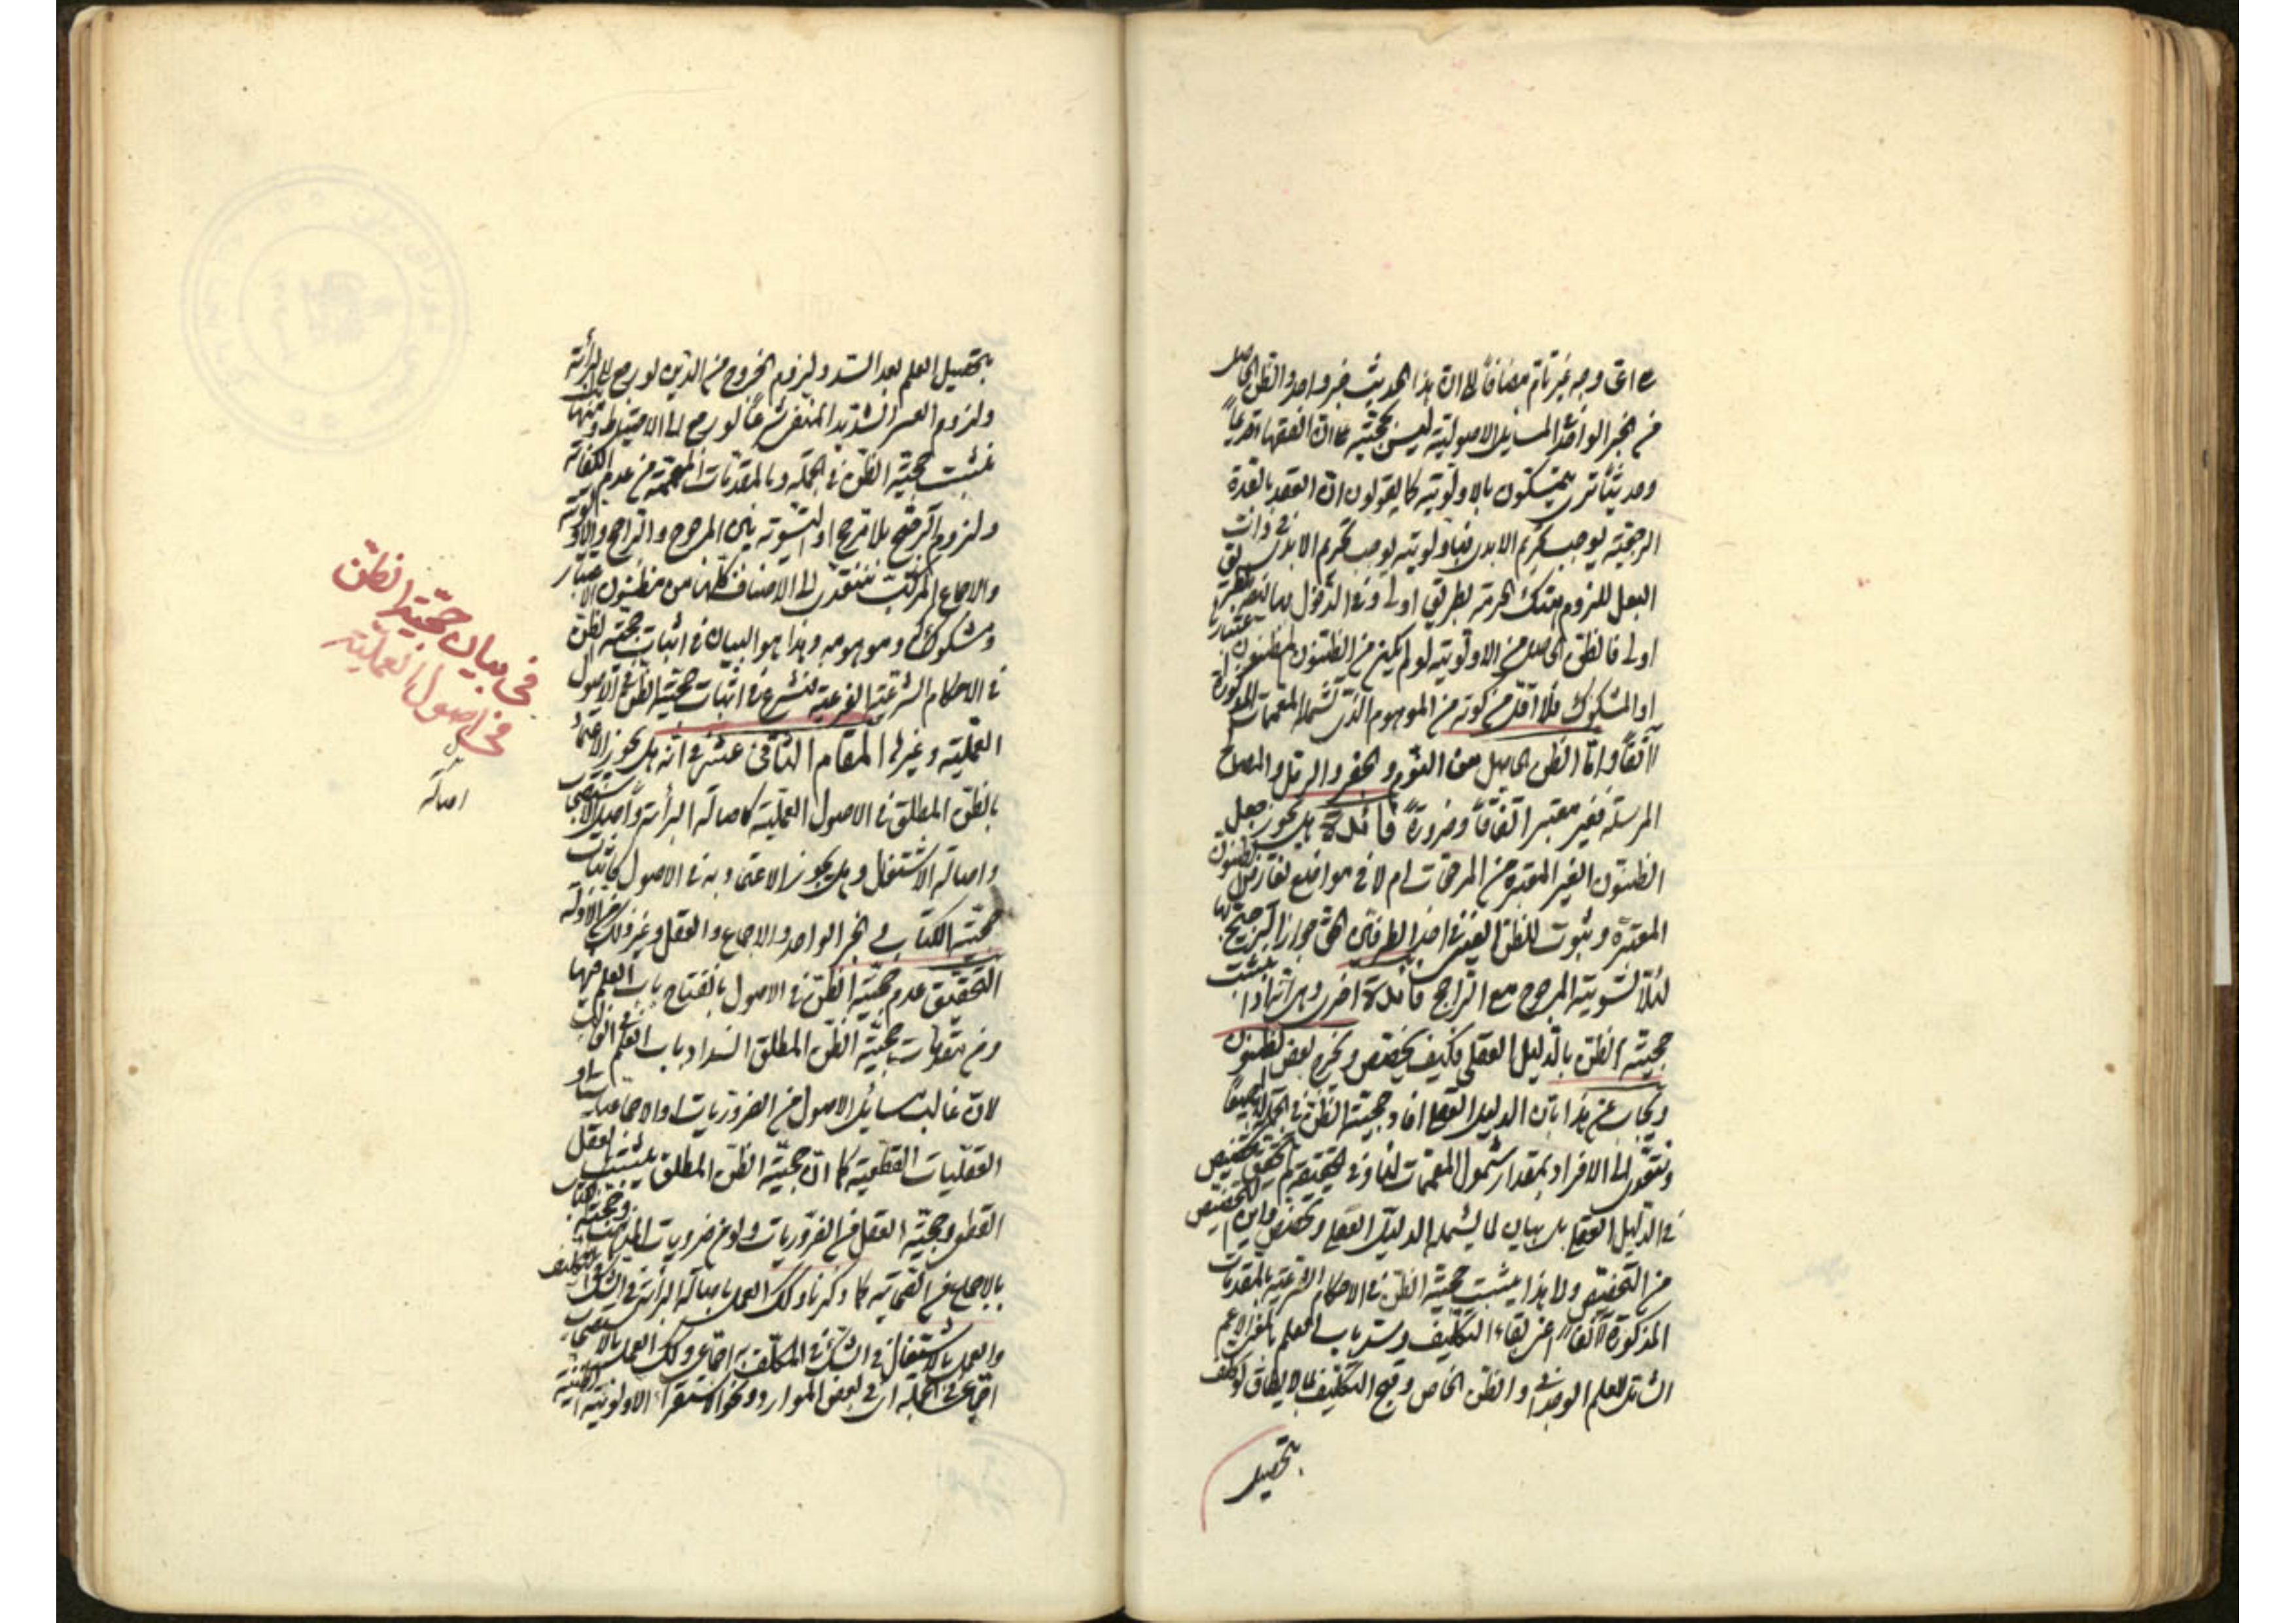 على اى وجه غير تام مضافاً الى ان هذا الحديث خبر واحد والظن الحاصل
من الخبر الواحد فى المسايل الاصولية ليس بحجية على ان الفقهاء قديماً
وحديثاً ترى يتمسكون بالاولوية كما يقولون ان العقد بالعدة
الرجعية يوجب تحريم الابدى فبأولويته يوجب تحريم الابدى فى ذات
البعل للزوم هتك الحرمة بطريق اولى وفى الدخول بها
اولى فالظن الحاصل من الاولوية لو لم يكن من الظنون المظنون
او المشكوك فلا اقل من كونه من الموهوم الذى تشمله المعممات المذكورة
آنفاً واما الظن الحاصل من النوم والجفر والرمل والمصالح
المرسلة فغير معتبر اتفاقاً وضرورة فائدة هل يجوز جعل
الظنون الغير المعتبرة من المرجحات ام لا فى مواضع تعارض الظنون
المعتبرة وثبوت للظن الغير فى احد الطرفين الحق جواز الترجيح بها
لئلا تسوية المرجوح مع الراجح فائدة اخرى وهى انه اذا يثبت
حجية الظن بالدليل العقلى فكيف يخصص ويخرج بعض الظنون
ويجاب عن هذا بان الدليل العقلى افاد حجية الظن فى الجملة
ونتعدى الى الافراد بمقدار شمول المعممات لها وفى الحقيقة لم يتحقق تخصيص
فى الدليل العقلى بل بيان لما يشمله الدليل العقلى وتخصص واين التخصيص
من التخصص ولهذا يثبت حجية الظن فى الاحكام الشرعية بالمقدمات
المذكورة آنفاً من بقاء التكليف وسد باب العلم بالمعنى الاعم
الشامل للعلم الوجدانى والظن الخاص وقبح التكليف بما لا يطاق لو كلف
بتحصيل
بتحصيل العلم بعد السد ولزوم الخروج من الدين لو رجع الى البرائة
ولزوم العسر الشديد المنفى شرعاً لو رجع الى الاحتياط ومنها
يثبت حجية الظن فى الجملة وبالمقدمات المعممة من عدم الكفاية
ولزوم الترجيح بلا مرجح او التسوية بين المرجوح والراجح والاولوية
والاجماع المركب نتعدى الى الاصناف كلها من مظنون الاعتبار
ومشكوك وموهومه وهذا هو البيان فى اثبات حجية الظن
فى الاحكام الشرعية الفرعية فنشرع فى اثبات حجية الظن فى الاصول
العملية وغيرها المقام الثانى عشر فى انه هل يجوز الاعتماد
بالظن المطلق فى الاصول العملية كاصالة البرائة واصل الاستصحاب
واصالة الاشتغال وهل يجوز الاعتماد به فى الاصول كاثبات
حجية الكتاب و الخبر الواحد والاجماع والعقل وغير ذلك من الادلة
التحقيق عدم حجية الظن فى الاصول بانفتاح باب العلم فيها
ومن مقدمات حجية الظن المطلق انسداد باب العلم فى الغالب
لان غالب مسائل الاصول من الضروريات او الاجماعيات او
العقليات القطعية كما ان حجية الظن المطلق يثبت بالعقل
القطعى وحجية العقل من الضروريات ولو من ضروريات المذهب وحجية الكتاب
بالاجماع من القمية كما ذكرنا وكذلك العمل باصالة البرائة فى الشك فى التكليف
والعمل بالاشتغال فى الشك فى المكلف به اجماعى وكذلك العمل بالاستصحاب
اجماعى فى الجملة اى فى بعض الموارد ونحو الاستقراء الاولوية الظنية
فى بيان حجية الظن
فى اصول العملية
اصالة